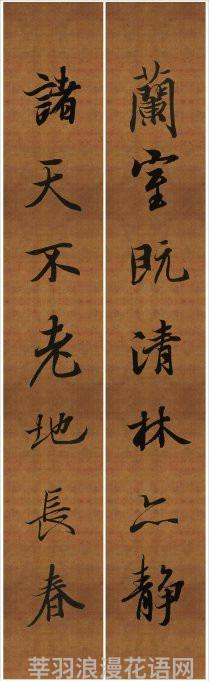 蘭室既清林亦静
諸天不老地長春
莘羽浪漫花语网